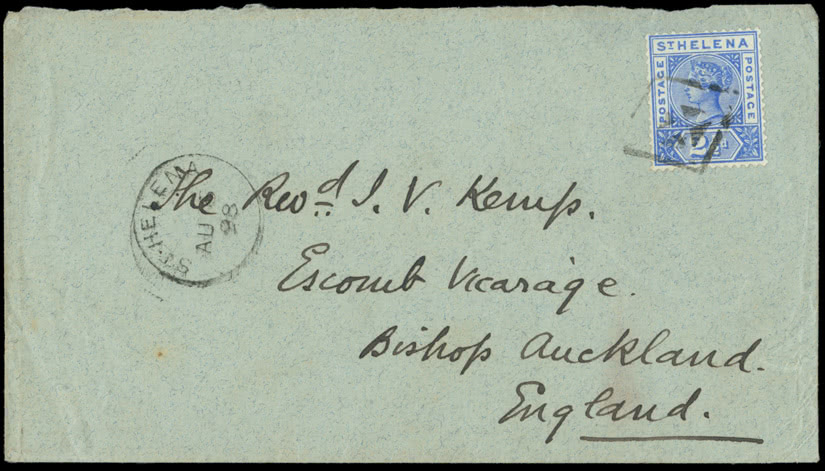 ST HELENA
POSTAGE
POSTAGE
ST. HELENA
AU
98
The Revd. J. V. Kemp.
Escomb Vicarage.
Bishop Auckland.
England.